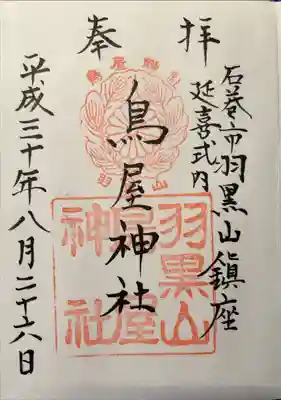 奉拝
石巻市羽黒山鎮座
延喜式内
鳥屋神社
平成三十年八月二十六日
羽黒山
鳥屋
神社